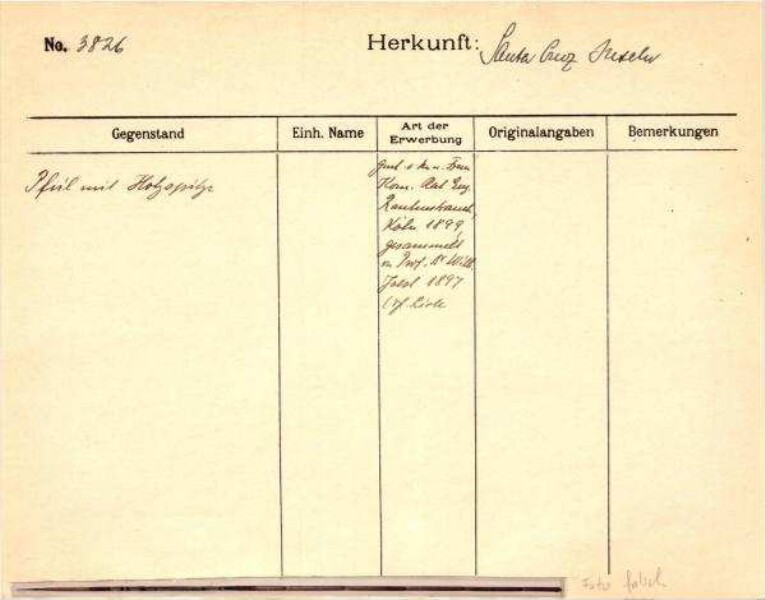 No. 3826
Herkunft: Santa Cruz Inseln
Gegenstand
Einh. Name
Art der Erwerbung
Originalangaben
Bemerkungen
Pfeil mit Holzspitze
Frau
Kom. Rat Eug.
Rautenstrauch,
Köln 1899,
gesammelt
v. Prof. Dr Wilh.
Joest 1897
Foto falsch